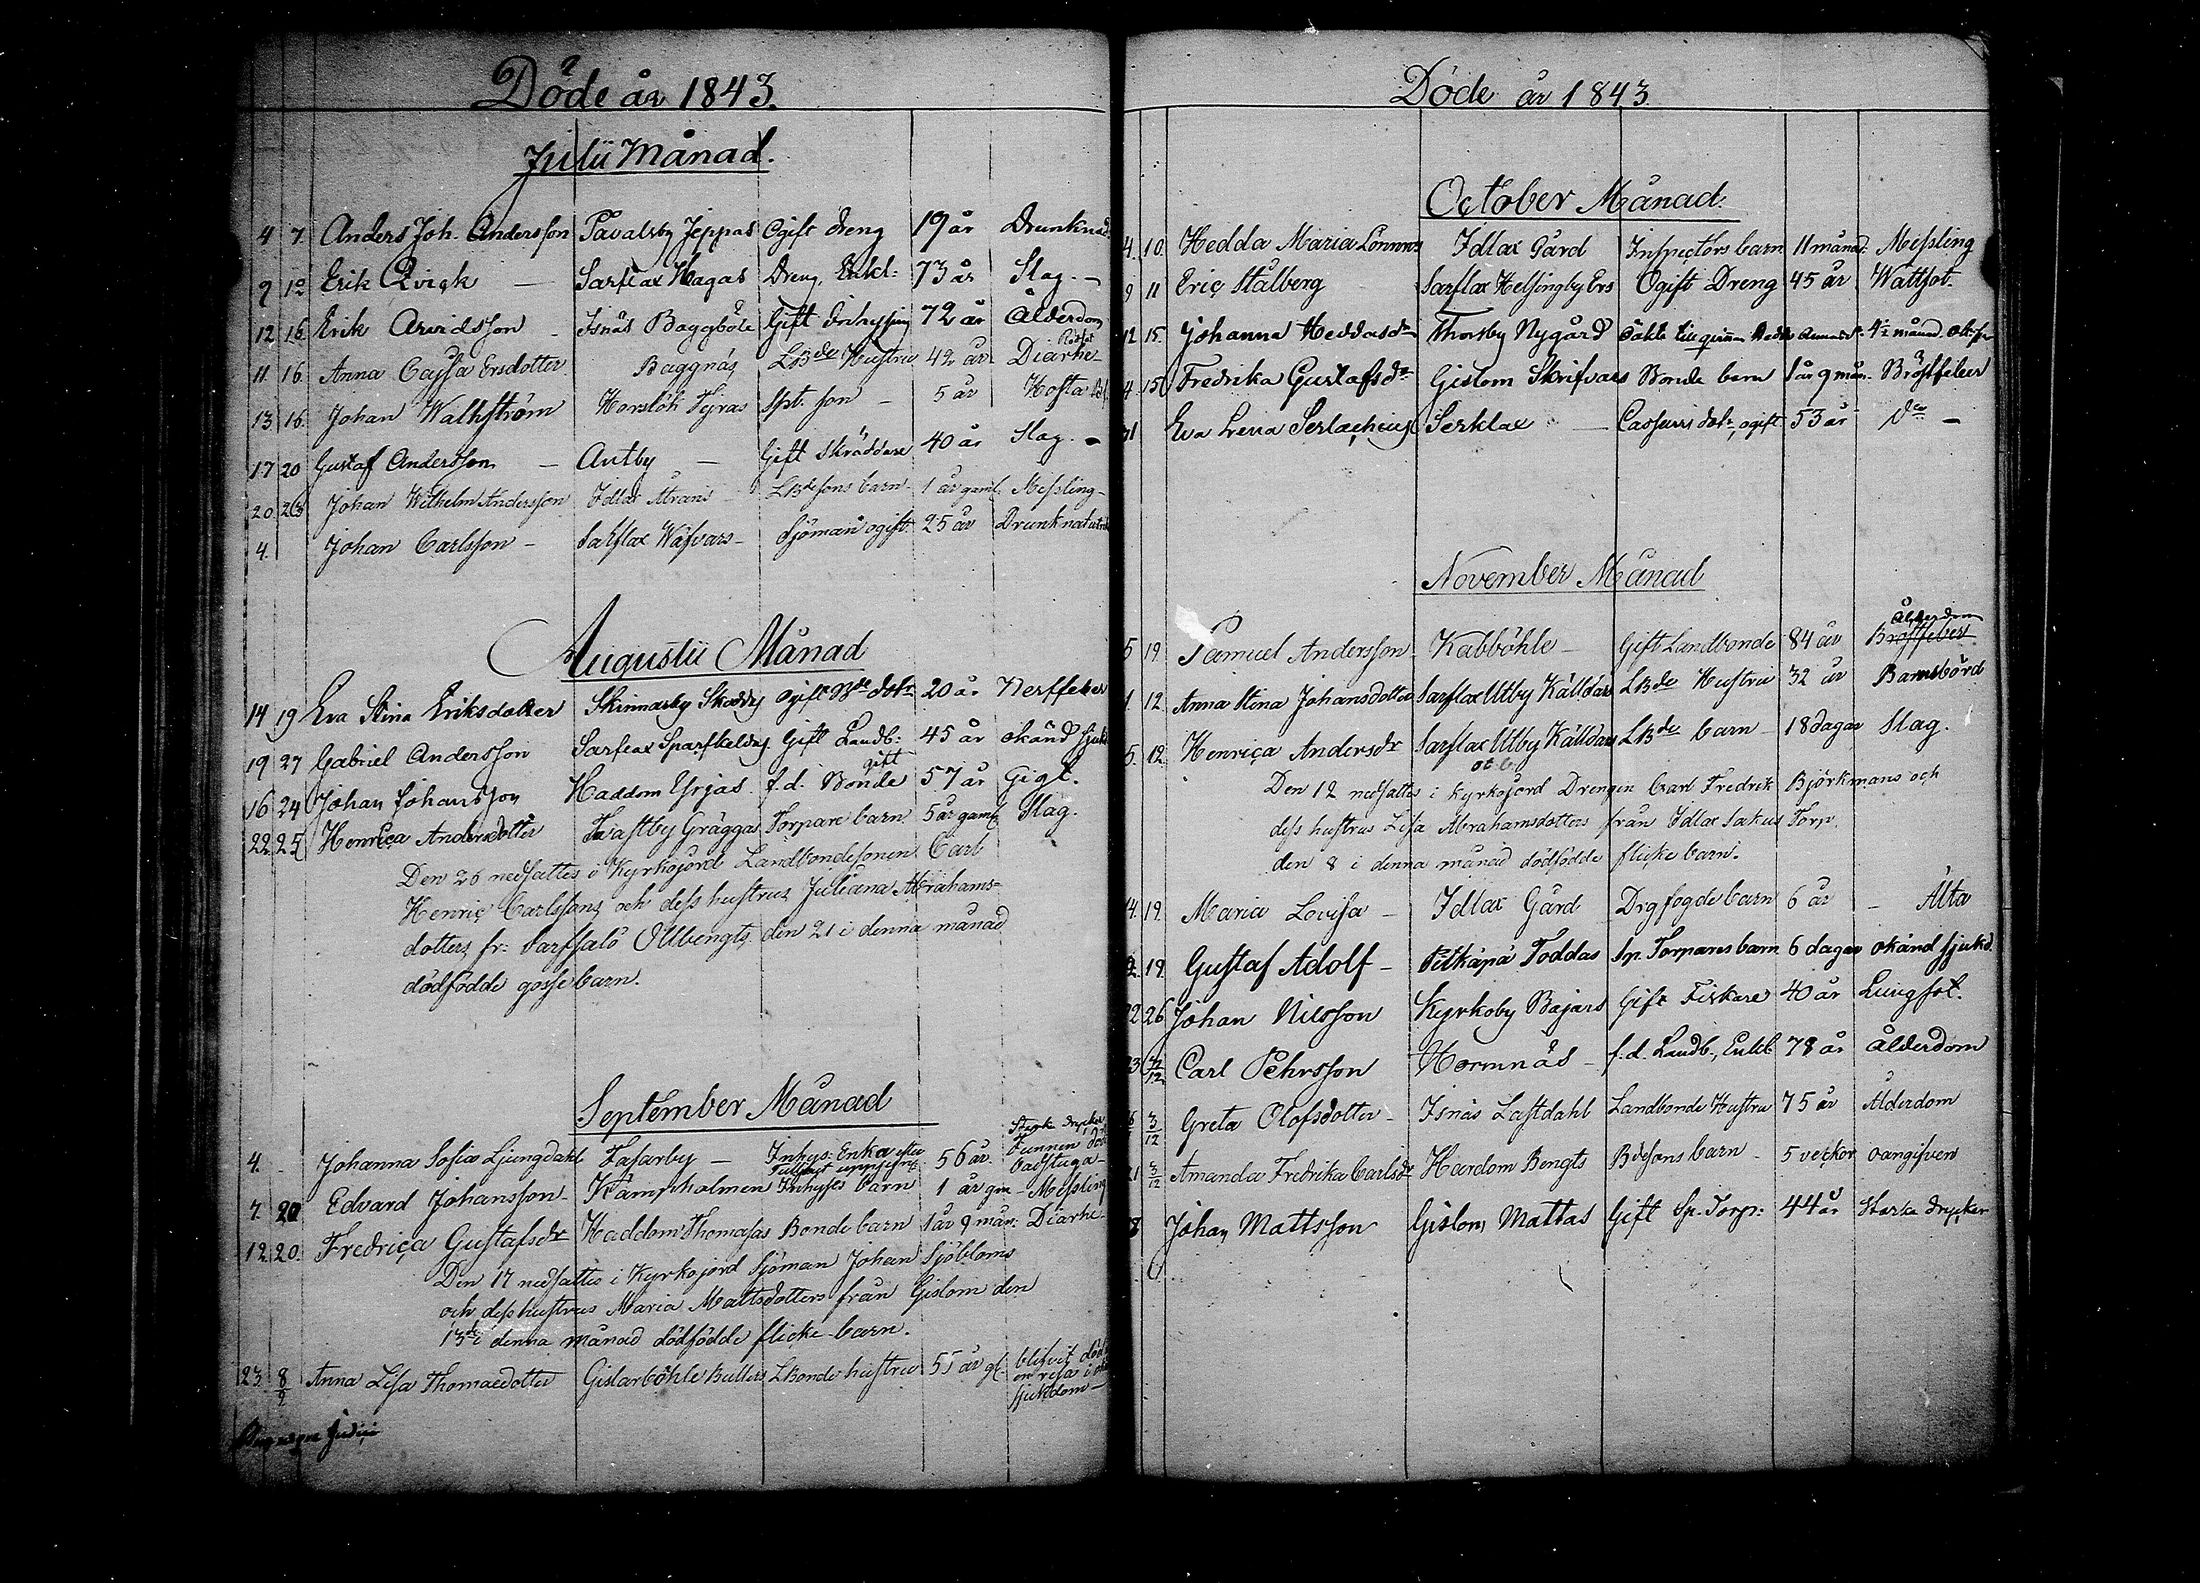 Döde år 1843.
Julii Månad.
4 7. Anders Joh. Andersson Påvalsby Jeppas Ogift dreng 19 år Drunknad
9 12 Erik Qvick — Sarflax Hagas Dreng, Enkl: 73 år Slag. —
12 16. Erik Arvidsson — Isnäs Baggböle Gift Inhysing 72 år Ålderdom
11. 16. Anna Cajsa Ersdotter Baggnäs LBde Hustru 42 år Rödsot Diarhe
13 16. Johan Walhström Horslök Tyras Spt. son — 5 år Hosta
17 20 Gustaf Andersson — Antby — Gift Skräddare 40 år Slag. —
20. 23 Johan Wilhelm Andersson Idlax Mrans — LBdesons barn — 1 år gaml. Messling —
4. Johan Carlsson — Sarflax Wäfvars — Sjöman ogift 25 år Drunknat
Augustii Månad
14 19 Eva Stina Eriksdotter Skinnarby Skeddy ogift Bde dotr 20 år Nerffeber
19 27 Gabriel Andersson Sarflax Sparfkelday Gift Landb: 45 år okänd sjukd
16 24 Johan Johansson Haddom Yrjas f.d. Bonde gift 57 år Gigt.
22 25 Henrica Andersdotter Tvastby Gräggas Torpare barn 5 år gaml Slag.
Den 26 nedsattes i Kyrkojord Landbondesonen Carl
Henric Carlssons och dess hustrus Juliana Abrahams=
dotters fr: Sarfsalö Ollbengts den 21 i denna månad
dödfödde gossebarn.
September Månad
4. Johanna Sofia Ljungdahl Fasarby — Inhys: Enka efter 56 år. Starka drycker Funnen död Badstuga
7. 20 Edvard Johansson — Kämpholmen Inhyses barn 1 år gm — Messling
12. 20. Fredrica Gustafsdr Haddom Thomasas Bonde barn 1 år 9 mån: Diarhe —
Den 17 nedsattes i Kyrkojord Sjöman Johan Sjöbloms
och dess hustrus Maria Mattsdotters från Gislom den
13de i denna månad dödfödde flicke barn.
23 8/2 Anna Lisa Thomaedotter Gislarböhle Bullers LBonde hustru 55 år gl. blifvit död en resa i sjukdom —
Döde år 1843
October Månad.
4. 10. Hedda Maria Lönnros Idlax Gård Inspectors barn 11 månad. Messling
9 11 Eric Stålberg Sarflax Helsingby Ers Ogift Dreng 45 år Wattsot.
12 15. Johanna Heddasdr Thorsby Nygård Oäkta 4½ månad
4. 15 Fredrika Gustafsdr Gislom Skrifvars Bonde barn 1 år 9 mån. Bröstfeber
31 Eva Lena Serlachius Serklax — Cassuris dotr, ogift 53 år do —
November Månad
5 19. Samuel Andersson — Kabböhle — Gift Landbonde 84 år Ålderdom Bröstfeber
1. 12. Anna Stina Johansdotter Sarflax Utby Källdars LBde Hustru 32 år Barnsbörd
5. 12. Henrica Andersdr Sarflax Utby Källdars LBde barn — 18 dagar Slag.
Den 12 nedsattes i Kyrkojord Drengen Carl Fredrik Björkmans och
dess hustrus Lisa Abrahamsdotters från Idlax Torp.
den 8 i denna månad dödfödde flicke barn.
4. 19. Maria Lovisa — Idlax Gård Drgfogde barn 6 år — Älta
19 Gustaf Adolf — Pitkäpä Toddas Sp. Torpares barn 6 dagar okänd sjukd.
22 26 Johan Nilsson Kyrkoby Bajars Gift Fiskare 40 år Lungsot.
23 3/12 Carl Pehrsson Hormnäs — f.d. Landb., Enkl 78 år Ålderdom
3/12 Greta Olofsdotter — Isnäs Lastdahl Landbonde Hustru 75 år Ålderdom
21 3/12 Amanda Fredrika Carlsdr Hardom Bengts Bdesons barn — 5 veckor oangifven
28 Johan Mattsson Gislom Mattas Gift Sp. Torp: 44 år Starka drycker